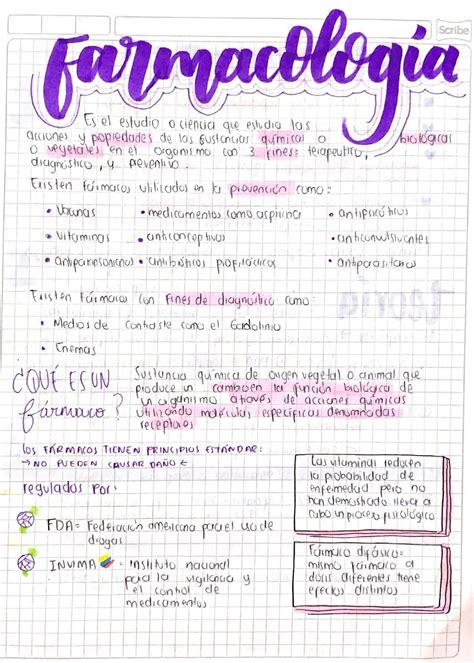 Scribe
Farmacología
Es el estudio o ciencia que estudia las
acciones y propiedades de las sustancias químicas o biológicas
o vegetales en el organismo con 3 fines: terapeutico,
diagnóstico, y preventivo.
Existen fármacos utilizados en la prevención como:
• Vacunas • medicamentos como aspirina • antipsicóticos
• Vitaminas • anticonceptivos • anticonvulsivantes
• Antiparkinsonianos • Antibióticos profilácticos • antiparasitarios
Existen Fármacos con FINES de diagnóstico como:
• Medios de contraste como el Gadolinio
• Enemas
¿QUÉ ES UN fármaco?
Sustancia química de origen vegetal o animal que
produce un cambio en la función biológica de
un organismo através de acciones químicas
utilizando moléculas específicas denominadas
receptores
LOS FÁRMACOS TIENEN PRINCIPIOS ESTÁNDAR:
→ NO PUEDEN CAUSAR DAÑO ←
regulados por:
FDA = Federación americana para el uso de
drogas
INVIMA = Instituto nacional
para la vigilancia y
el control de
medicamentos
Las vitaminas reducen
la probabilidad de
enfermedad pero no
han demostrado lleva a
cabo un proceso fisiológico
Fármaco difásico =
mismo fármaco a
dosis diferentes tiene
efectos distintos